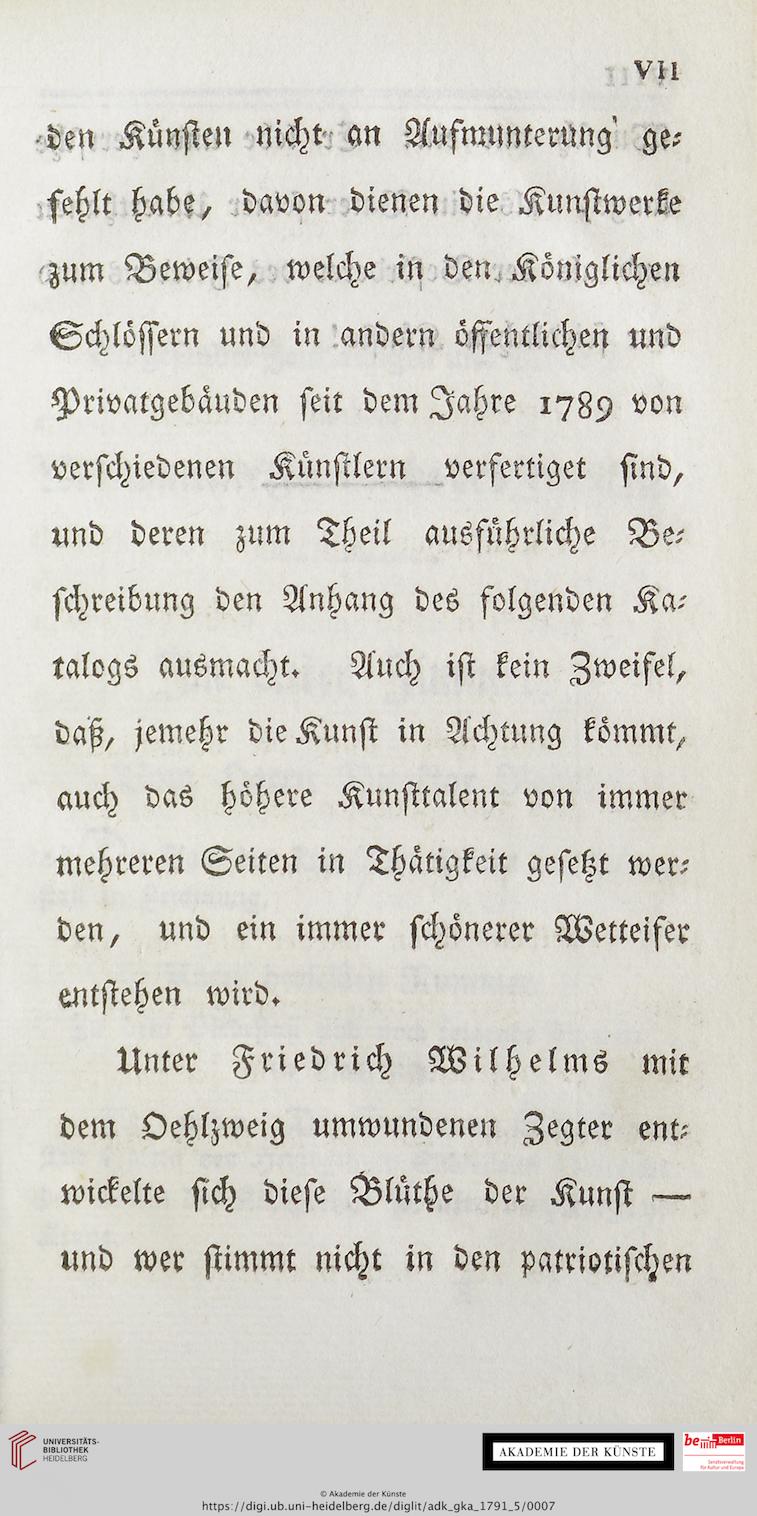 VII
den Künsten nicht an Aufmunterung ge⸗
fehlt habe, davon dienen die Kunstwerke
zum Beweise, welche in den Königlichen
Schlössern und in andern öffentlichen und
Privatgebäuden seit dem Jahre 1789 von
verschiedenen Künstlern verfertiget sind,
und deren zum Theil ausführliche Be⸗
schreibung den Anhang des folgenden Ka⸗
talogs ausmacht. Auch ist kein Zweifel,
daß, jemehr die Kunst in Achtung kömmt,
auch das höhere Kunsttalent von immer
mehreren Seiten in Thätigkeit gesetzt wer⸗
den, und ein immer schönerer Wetteifer
entstehen wird.
Unter Friedrich Wilhelms mit
dem Oehlzweig umwundenen Zegter ent⸗
wickelte sich diese Blüthe der Kunst —
und wer stimmt nicht in den patriotischen
UNIVERSITÄTS-
BIBLIOTHEK
HEIDELBERG
AKADEMIE DER KÜNSTE
be Berlin
Senatsverwaltung
für Kultur und Europa
© Akademie der Künste
https://digi.ub.uni-heidelberg.de/diglit/adk_gka_1791_5/0007